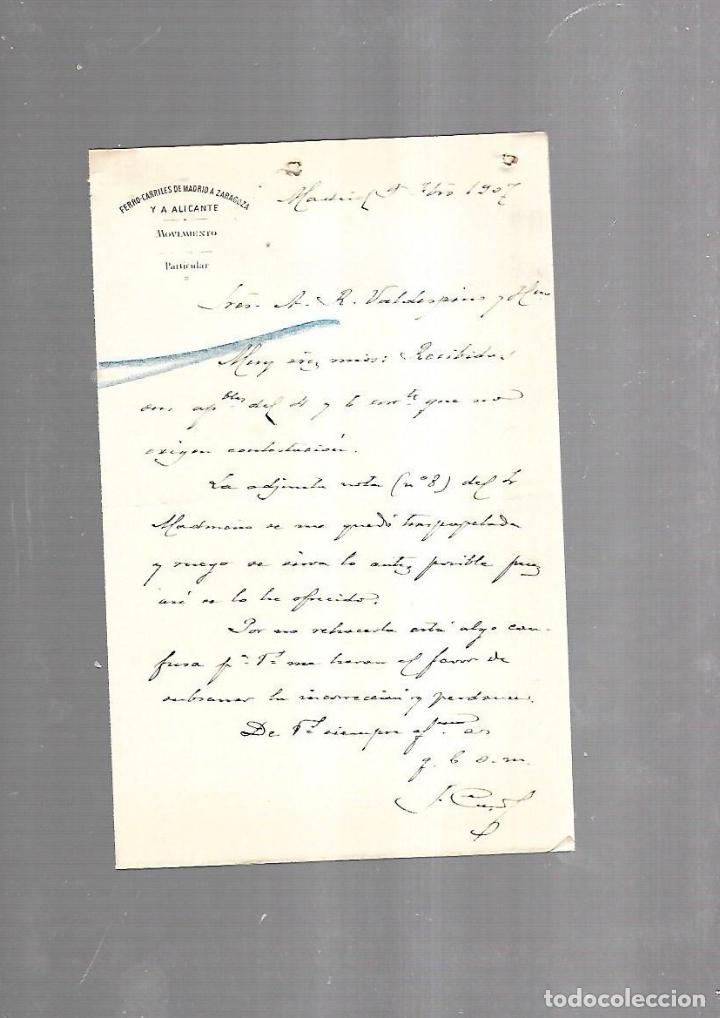 FERRO-CARRILES DE MADRID A ZARAGOZA
Y A ALICANTE
MOVIMIENTO
Particular
Madrid 9 1907
Sres. A. R. Valdespino y Hno
Muy Sres mios: Recibidas
sus apbles del 4 y 6 corrte que no
exigen contestación.
La adjunta nota (nº 8) del Sr
se me quedó traspapelada
y ruego se sirva lo antes posible pues
asi se lo he ofrecido.
Por no rehacerla está algo con-
fusa pº Vs me haran el favor de
subsanar la incorrección y perdonar.
De Vs siempre afmo ss
q. b. s. m.
todocoleccion
todocoleccion.net